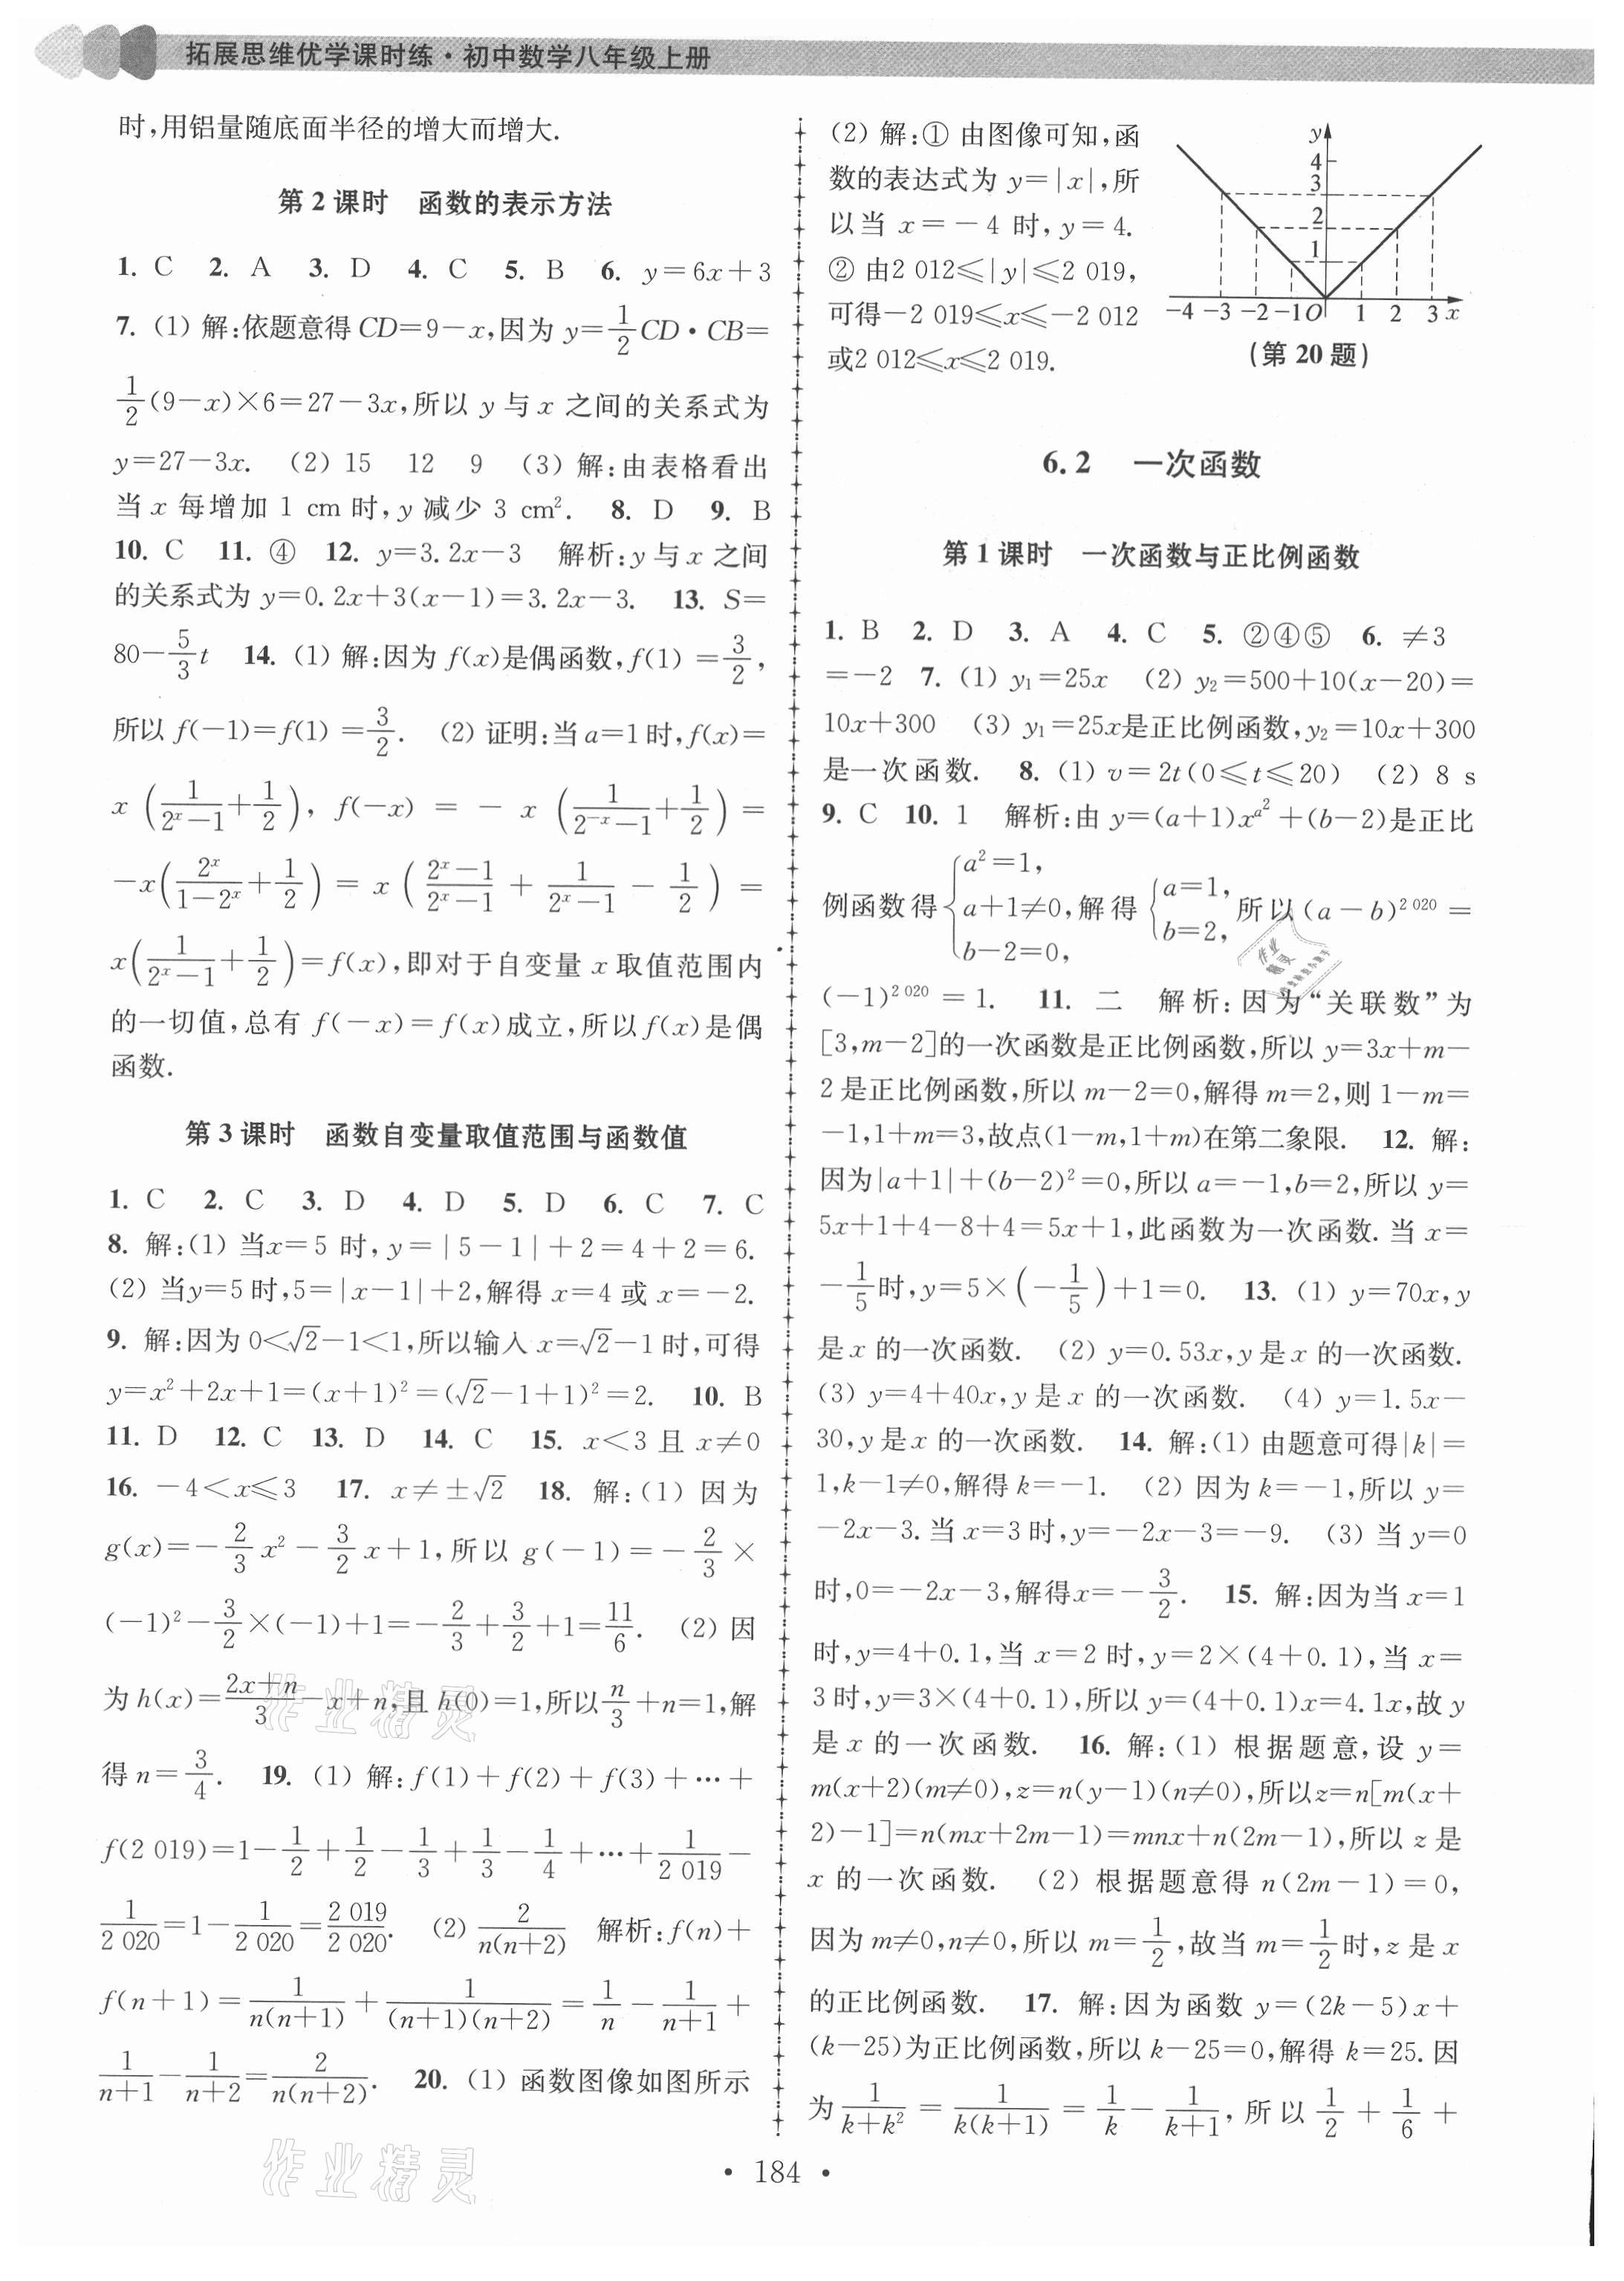 拓展思维优学课时练·初中数学八年级上册
时,用铝量随底面半径的增大而增大.
第2课时 函数的表示方法
1. C 2. A 3. D 4. C 5. B 6. y=6x+3
7. (1) 解:依题意得CD=9-x,因为 y=1/2CD·CB=
1/2(9-x)×6=27-3x,所以 y 与 x 之间的关系式为
y=27-3x. (2) 15 12 9 (3) 解:由表格看出
当 x 每增加 1 cm 时,y 减少 3 cm². 8. D 9. B
10. C 11. ④ 12. y=3.2x-3 解析:y与x之间
的关系式为 y=0.2x+3(x-1)=3.2x-3. 13. S=
80-5/3t 14. (1) 解:因为 f(x)是偶函数,f(1)=3/2,
所以 f(-1)=f(1)=3/2. (2) 证明:当a=1时,f(x)=
x(1/(2^x-1)+1/2), f(-x) = -x(1/(2^(-x)-1)+1/2) =
-x(2^x/(1-2^x)+1/2) = x((2^x-1)/(2^x-1)+1/(2^x-1)-1/2) =
x(1/(2^x-1)+1/2)=f(x),即对于自变量 x 取值范围内
的一切值,总有 f(-x)=f(x)成立,所以f(x)是偶
函数.
第3课时 函数自变量取值范围与函数值
1. C 2. C 3. D 4. D 5. D 6. C 7. C
8. 解:(1) 当x=5 时,y=|5-1|+2=4+2=6.
(2) 当y=5时,5=|x-1|+2,解得 x=4 或 x=-2.
9. 解:因为 0<√2-1<1,所以输入 x=√2-1时,可得
y=x²+2x+1=(x+1)²=(√2-1+1)²=2. 10. B
11. D 12. C 13. D 14. C 15. x<3 且 x≠0
16. -4<x≤3 17. x≠±√2 18. 解:(1) 因为
g(x)=-2/3x²-3/2x+1,所以 g(-1)=-2/3×
(-1)²-3/2×(-1)+1=-2/3+3/2+1=11/6. (2) 因
为 h(x)=(2x+n)/3-x+n,且 h(0)=1,所以n/3+n=1,解
得 n=3/4. 19. (1) 解:f(1)+f(2)+f(3)+…+
f(2 019)=1-1/2+1/2-1/3+1/3-1/4+…+1/2 019-
1/2 020=1-1/2 020=2 019/2 020. (2) 2/(n(n+2)) 解析:f(n)+
f(n+1)=1/(n(n+1))+1/((n+1)(n+2))=1/n-1/(n+1)+
1/(n+1)-1/(n+2)=2/(n(n+2)). 20. (1) 函数图像如图所示
(2) 解:① 由图像可知,函
数的表达式为 y=|x|,所
以当 x=-4 时,y=4.
② 由2 012≤|y|≤2 019,
可得-2 019≤x≤-2 012
或2 012≤x≤2 019.
y
4
3
2
1
-4 -3 -2 -1 O 1 2 3 x
(第 20 题)
6.2 一次函数
第1课时 一次函数与正比例函数
1. B 2. D 3. A 4. C 5. ②④⑤ 6. ≠3
=-2 7. (1) y₁=25x (2) y₂=500+10(x-20)=
10x+300 (3) y₁=25x是正比例函数,y₂=10x+300
是一次函数. 8. (1) v=2t(0≤t≤20) (2) 8 s
9. C 10. 1 解析:由 y=(a+1)x^(a²)+(b-2)是正比
例函数得{a²=1, a+1≠0, b-2=0,解得{a=1, b=2,所以(a-b)^2 020=
(-1)^2 020=1. 11. 二 解析:因为“关联数”为
[3,m-2]的一次函数是正比例函数,所以 y=3x+m-
2是正比例函数,所以 m-2=0,解得 m=2,则 1-m=
-1,1+m=3,故点(1-m,1+m)在第二象限. 12. 解:
因为|a+1|+(b-2)²=0,所以 a=-1,b=2,所以 y=
5x+1+4-8+4=5x+1,此函数为一次函数. 当 x=
-1/5时,y=5×(-1/5)+1=0. 13. (1) y=70x,y
是 x 的一次函数. (2) y=0.53x,y是 x 的一次函数.
(3) y=4+40x,y 是 x 的一次函数. (4) y=1.5x-
30,y是 x 的一次函数. 14. 解:(1) 由题意可得|k|=
1,k-1≠0,解得 k=-1. (2) 因为 k=-1,所以 y=
-2x-3. 当 x=3 时,y=-2x-3=-9. (3) 当 y=0
时,0=-2x-3,解得x=-3/2. 15. 解:因为当 x=1
时,y=4+0.1,当 x=2 时,y=2×(4+0.1),当 x=
3 时,y=3×(4+0.1),所以 y=(4+0.1)x=4.1x,故 y
是 x 的一次函数. 16. 解:(1) 根据题意,设 y=
m(x+2)(m≠0),z=n(y-1)(n≠0),所以z=n[m(x+
2)-1]=n(mx+2m-1)=mnx+n(2m-1),所以 z 是
x 的一次函数. (2) 根据题意得 n(2m-1)=0,
因为 m≠0,n≠0,所以 m=1/2,故当 m=1/2时,z 是 x
的正比例函数. 17. 解:因为函数 y=(2k-5)x+
(k-25)为正比例函数,所以 k-25=0,解得 k=25. 因
为 1/(k+k²)=1/(k(k+1))=1/k-1/(k+1),所以 1/2+1/6+
作业精灵
作业精灵
· 184 ·